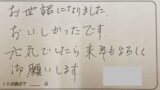 お世話になりました。
おいしかったです。
元気でしたら来年もよろしく
お願いします